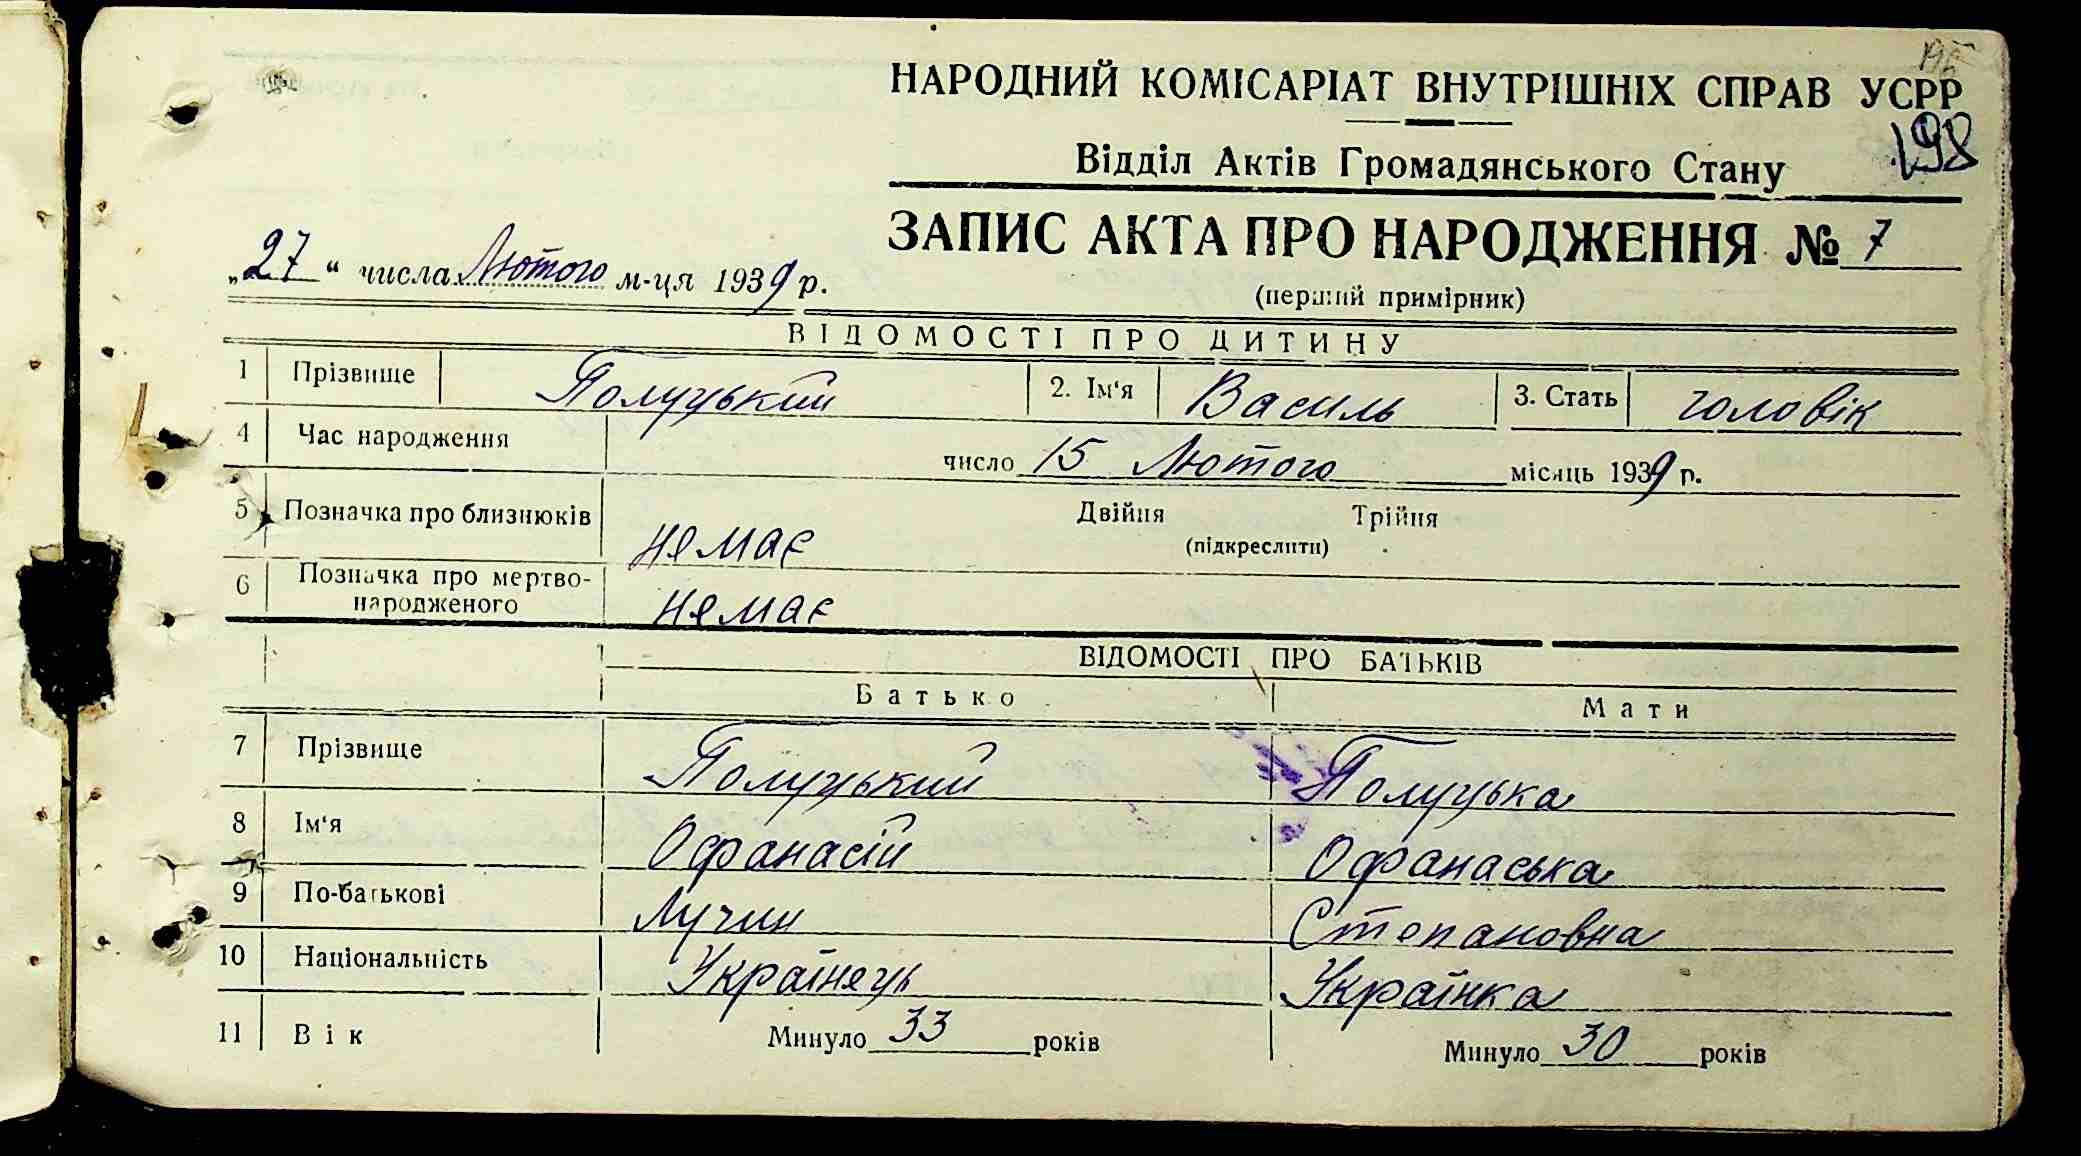 НАРОДНИЙ КОМІСАРІАТ ВНУТРІШНІХ СПРАВ УСРР
198
Відділ Актів Громадянського Стану
ЗАПИС АКТА ПРО НАРОДЖЕННЯ № 7
„27“ числа Лютого м-ця 1939 р.
(перший примірник)
ВІДОМОСТІ ПРО ДИТИНУ
1 Прізвище Полуцький 2. Ім'я Василь 3. Стать чоловік
4 Час народження число 15 Лютого місяць 1939 р.
5 Позначка про близнюків немає Двійня Трійня
(підкреслити)
6 Позначка про мертво-
народженого немає
ВІДОМОСТІ ПРО БАТЬКІВ
Батько Мати
7 Прізвище Полуцький Полуцька
8 Ім'я Офанасій Офанаська
9 По-батькові Лучин Степановна
10 Національність Українець Українка
11 Вік Минуло 33 років Минуло 30 років